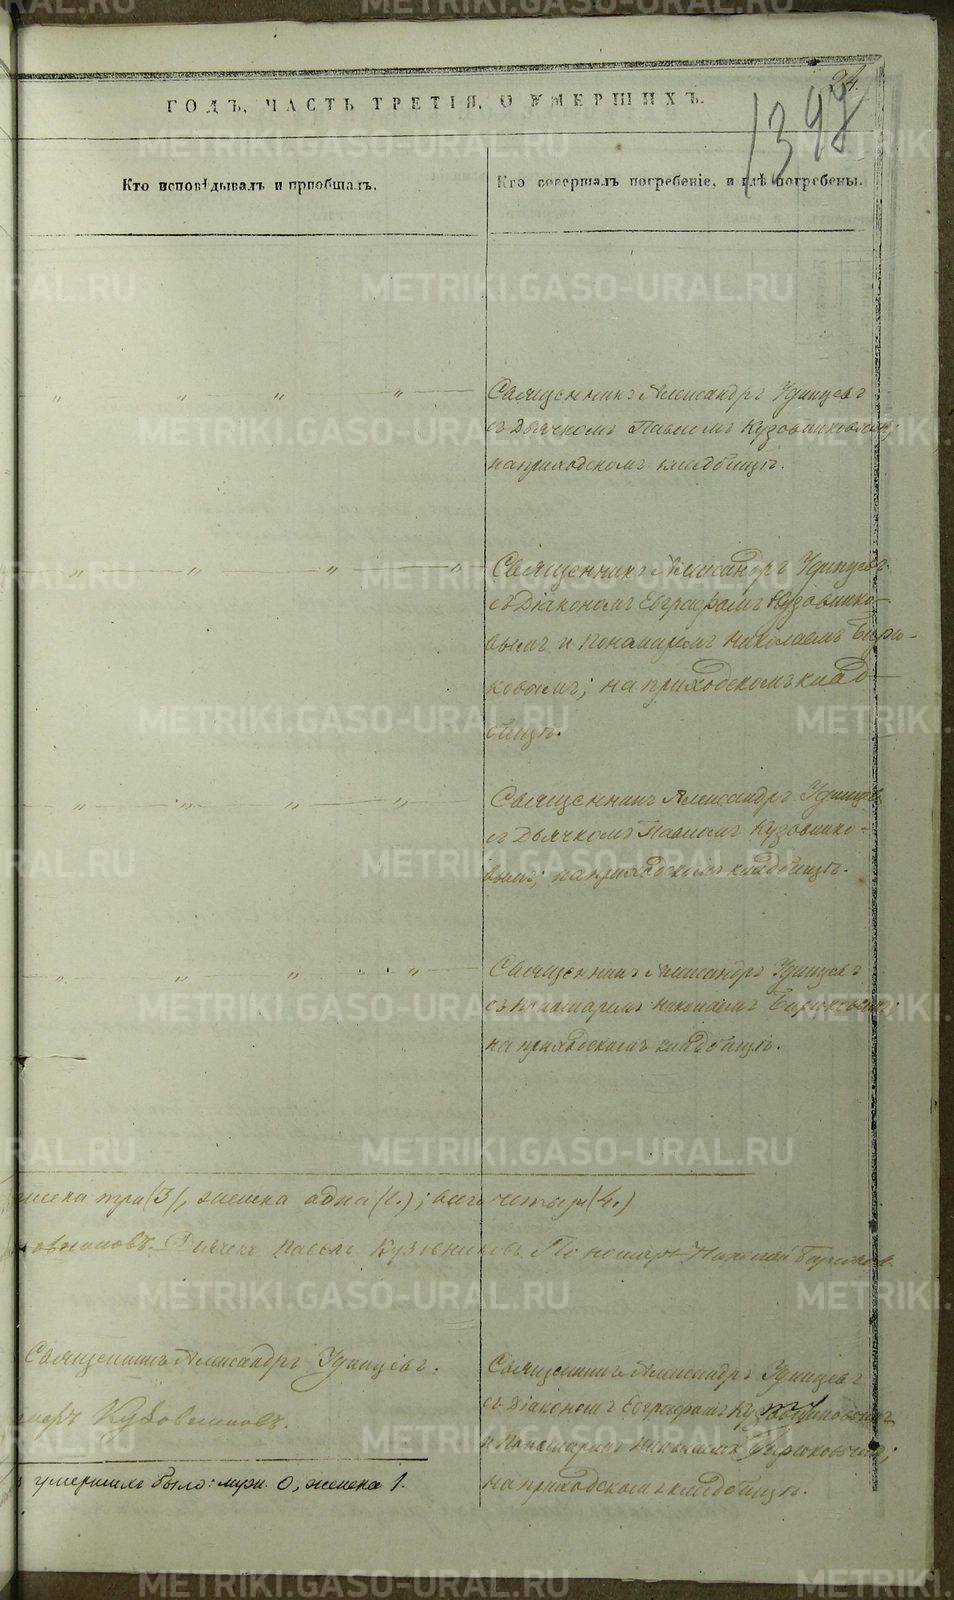 24.
1399
ГОДЪ, ЧАСТЬ ТРЕТІЯ, О УМЕРШИХЪ.
Кто исповѣдывалъ и пріобщалъ.
Кто совершалъ погребеніе, и гдѣ погребены.
Священникъ Александръ Удинцевъ
съ Дьячкомъ Павломъ Кузовниковымъ;
на приходскомъ кладбищѣ.
Священникъ Александръ Удинцевъ
съ Діакономъ Евграфомъ Кузовнико-
вымъ и Пономаремъ Николаемъ Бирю-
ковымъ; на приходскомъ клад-
бищѣ.
Священникъ Александръ Удинцевъ
съ Дьячкомъ Павломъ Кузовнико-
вымъ; на приходскомъ кладбищѣ.
Священникъ Александръ Удинцевъ
съ Пономаремъ Николаемъ Бирюковымъ;
на приходскомъ кладбищѣ.
три (3), женска одна (1.); всего четыре (4.)
Дьячекъ Павелъ Кузовниковъ Пономарь Николай Бирюков
Священникъ Александръ Удинцевъ.
Кузовниковъ.
умершихъ было: муж. 0, женска 1.
Священникъ Александръ Удинцевъ
съ Діакономъ Евграфомъ Кузовниковымъ
и Пономаремъ Николаемъ Бирюковымъ;
на приходскомъ кладбищѣ.
METRIKI.GASO-URAL.RU